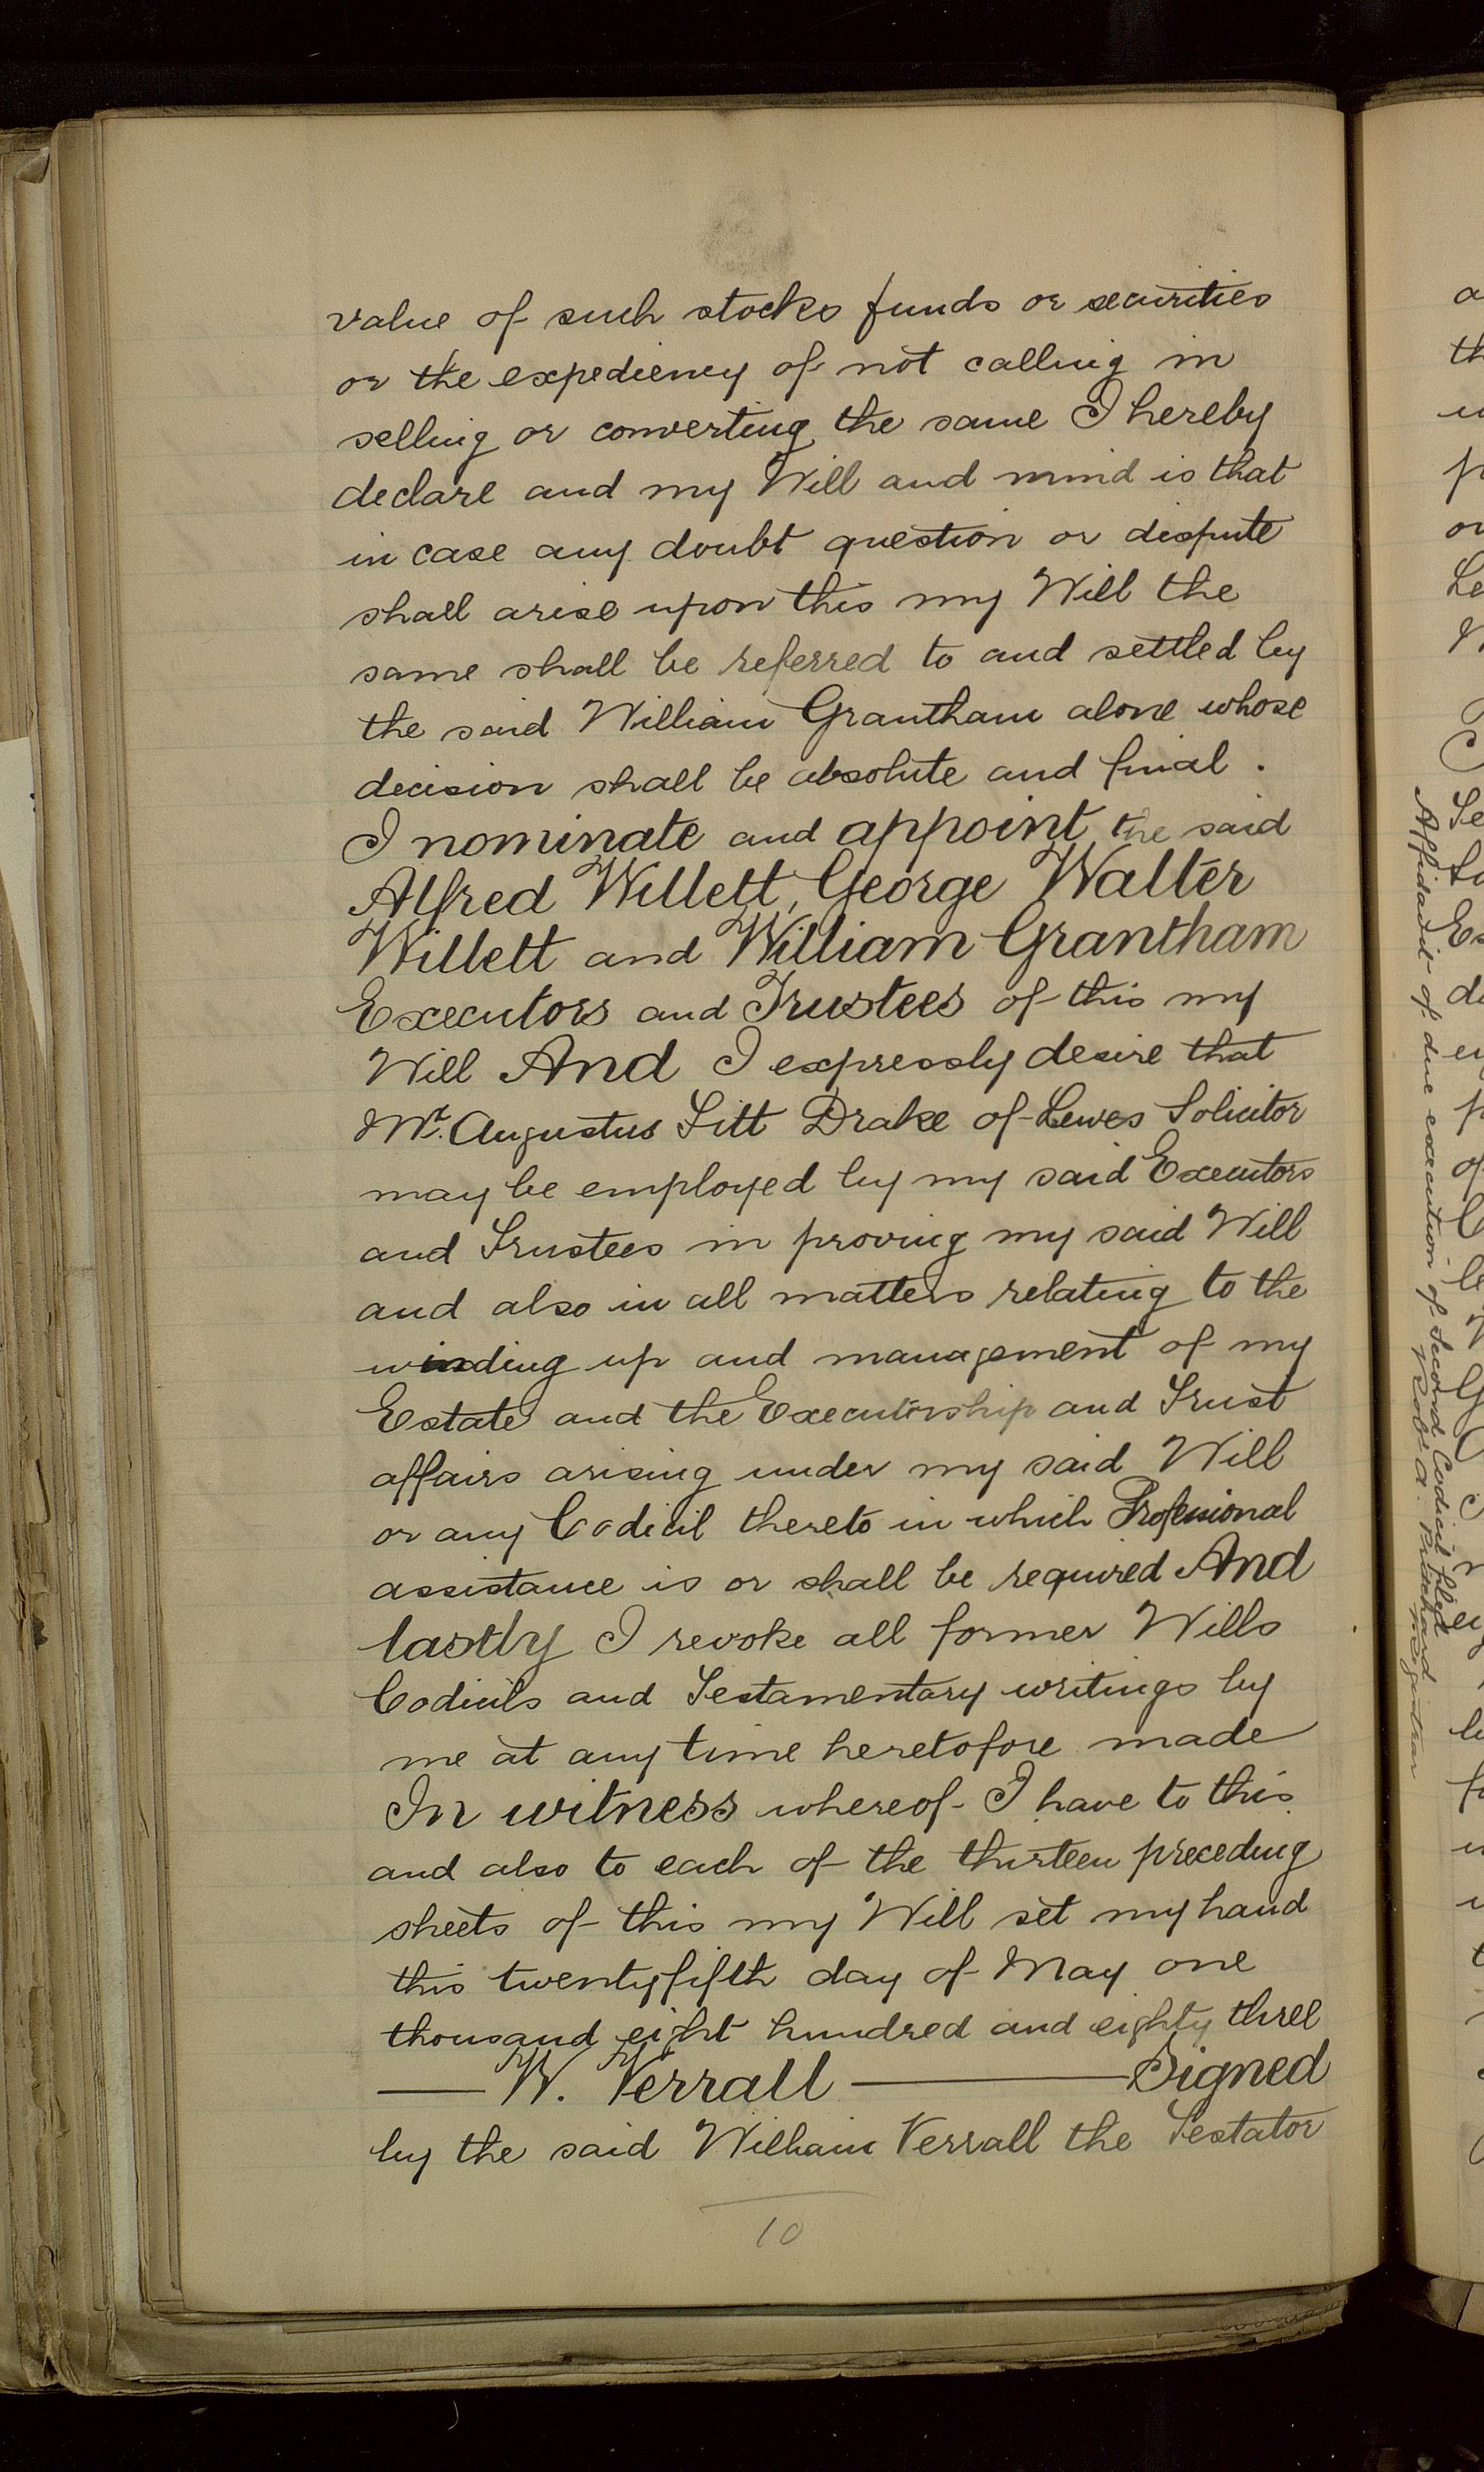 value of such stocks funds or securities
or the expediency of not calling in
selling or converting the same I hereby
declare and my Will and mind is that
in case any doubt question or dispute
shall arise upon this my Will the
same shall be referred to and settled by
the said William Grantham alone whose
decision shall be absolute and final.
I nominate and appoint the said
Alfred Willett, George Walter
Willett and William Grantham
Executors and Trustees of this my
Will And I expressly desire that
Mr. Augustus Sitt Drake of Lewes Solicitor
may be employed by my said Executors
and Trustees in proving my said Will
and also in all matters relating to the
winding up and management of my
Estate and the Executorship and Trust
affairs arising under my said Will
or any Codicil thereto in which Professional
assistance is or shall be required And
lastly I revoke all former Wills
Codicils and Testamentary writings by
me at any time heretofore made
In witness whereof I have to this
and also to each of the thirteen preceding
sheets of this my Will set my hand
this twentyfifth day of May one
thousand eight hundred and eighty three
W. Verrall Signed
by the said William Verrall the Testator
10
Affidavit of due execution of Second Codicil filed
Robt. A. Pritchard
Registrar